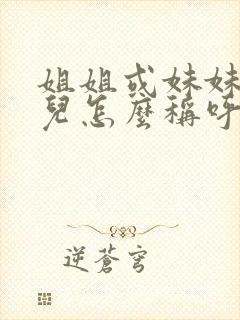 姐姐或妹妹
兒怎麼稱呼
逆蒼穹